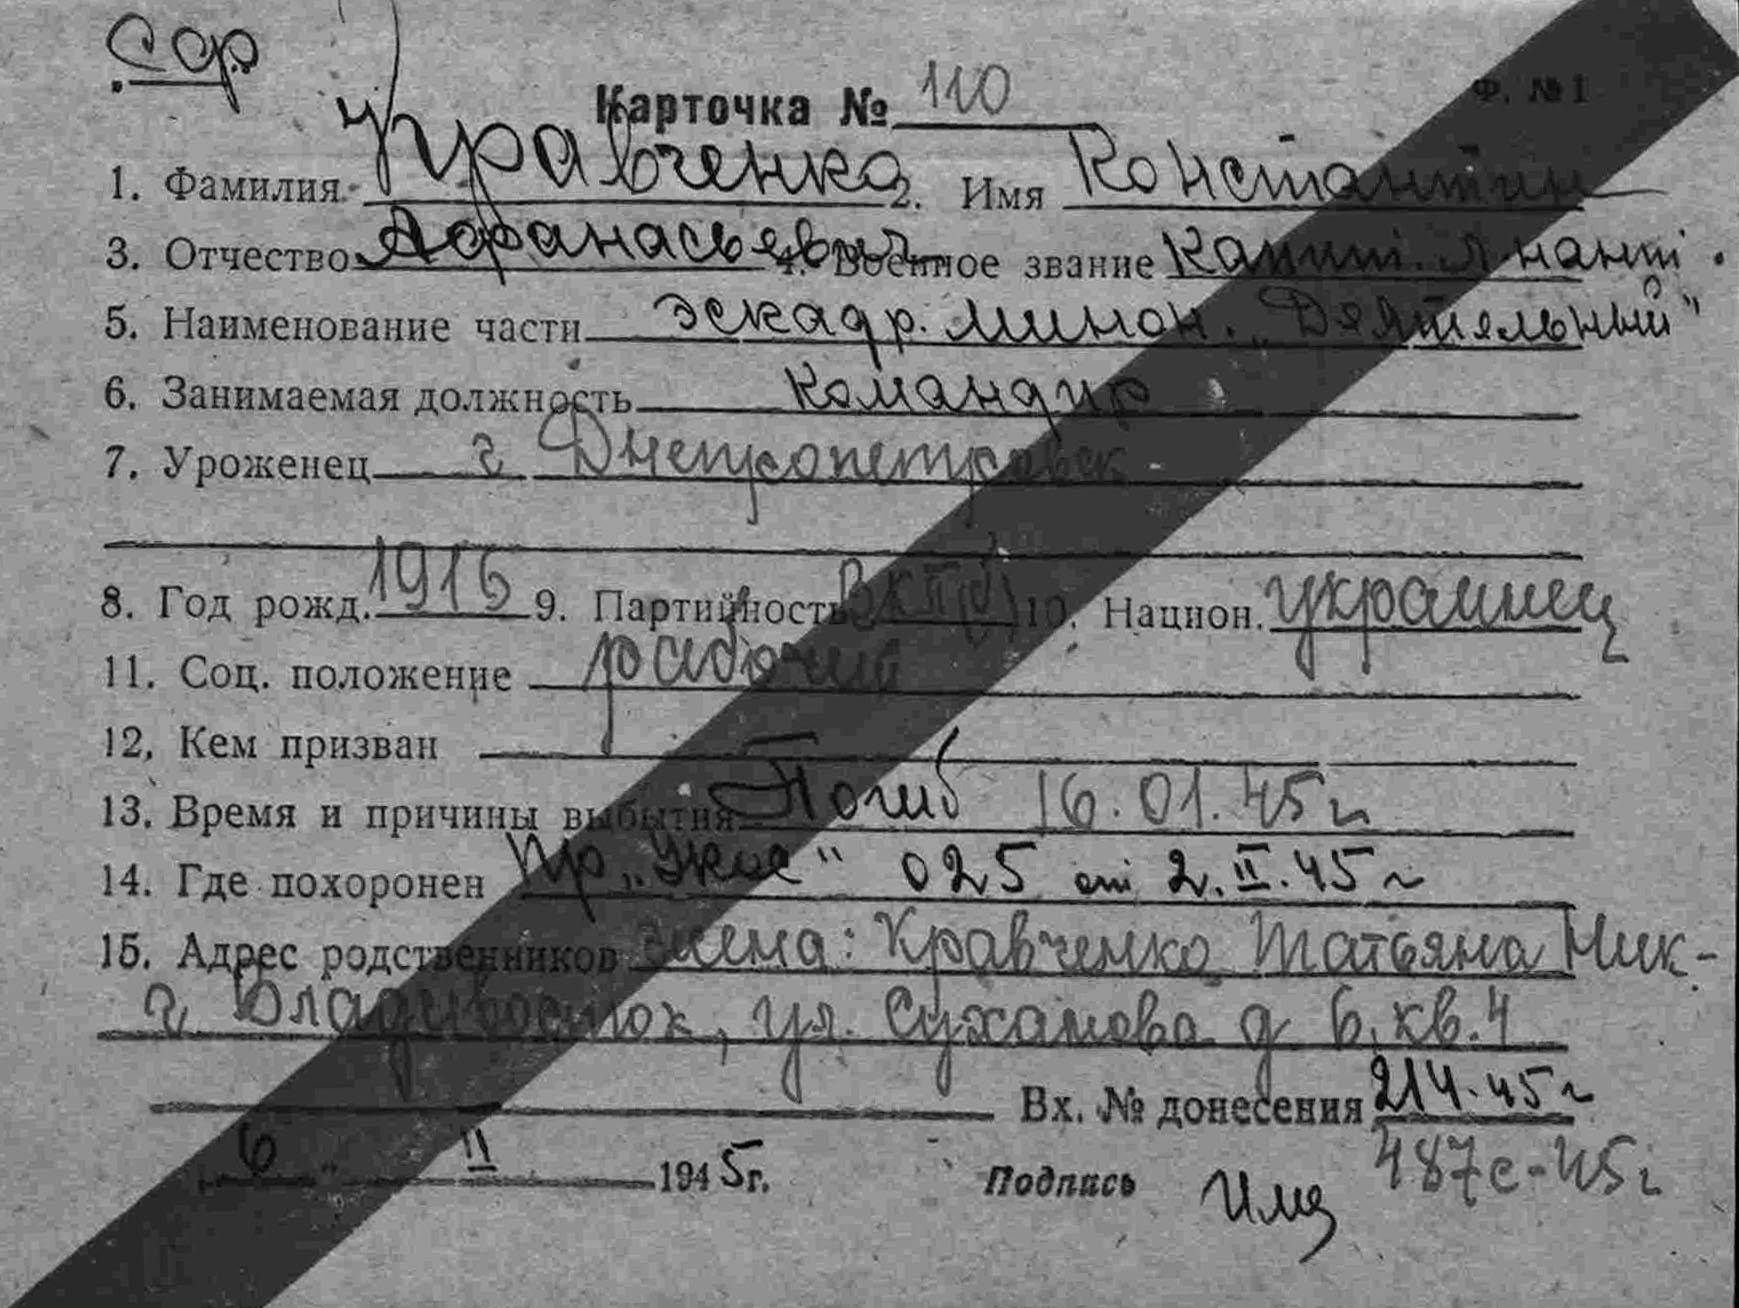 СФ
Карточка № 110
Ф. № 1
1. Фамилия Кравченко 2. Имя Константин
3. Отчество Афанасьевич 4. Военное звание Капит. л-нант.
5. Наименование части эскадр. минон. „Деятельный"
6. Занимаемая должность командир
7. Уроженец г Днепропетровск
8. Год рожд. 1916 9. Партийность ВКП(б) 10. Национ. украинец
11. Соц. положение рабочий
12, Кем призван
13. Время и причины выбытия Погиб 16.01.45 г
14. Где похоронен Пр „ 025 от 2.II.45 г
15. Адрес родственников жена: Кравченко Татьяна Ник-
г. Владивосток, ул. Суханова д 6. кв. 4
Вх. № донесения 214-45 г
487с-45 г
„6" II 1945 г. Подпись